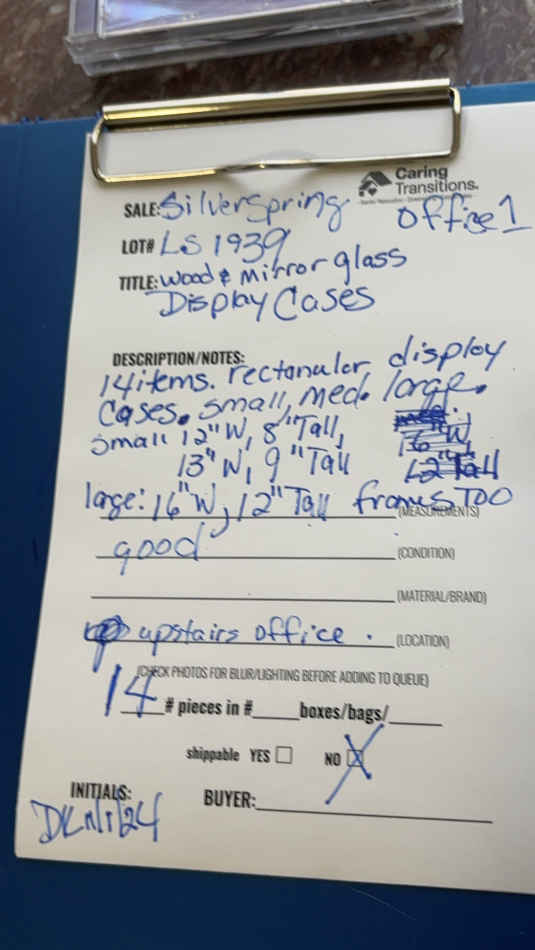 Caring
Transitions.
SALE: Silver Spring Office 1
LOT# LS 1939
TITLE: Wood & Mirror glass
Display Cases
DESCRIPTION/NOTES:
14 items. rectanular display
Cases. small, med. large.
small 12"W, 8"Tall,
13"W, 9"Tall
16"W
12"Tall
large: 16"W, 12"Tall frames TOO
(MEASUREMENTS)
good (CONDITION)
(MATERIAL/BRAND)
upstairs office. (LOCATION)
(CHECK PHOTOS FOR BLUR/LIGHTING BEFORE ADDING TO QUEUE)
14 # pieces in #_____boxes/bags/_____
shippable YES NO X
INITIALS: BUYER: